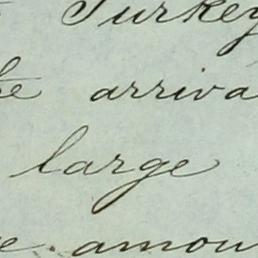 Turkey
the arriva
large
e amou